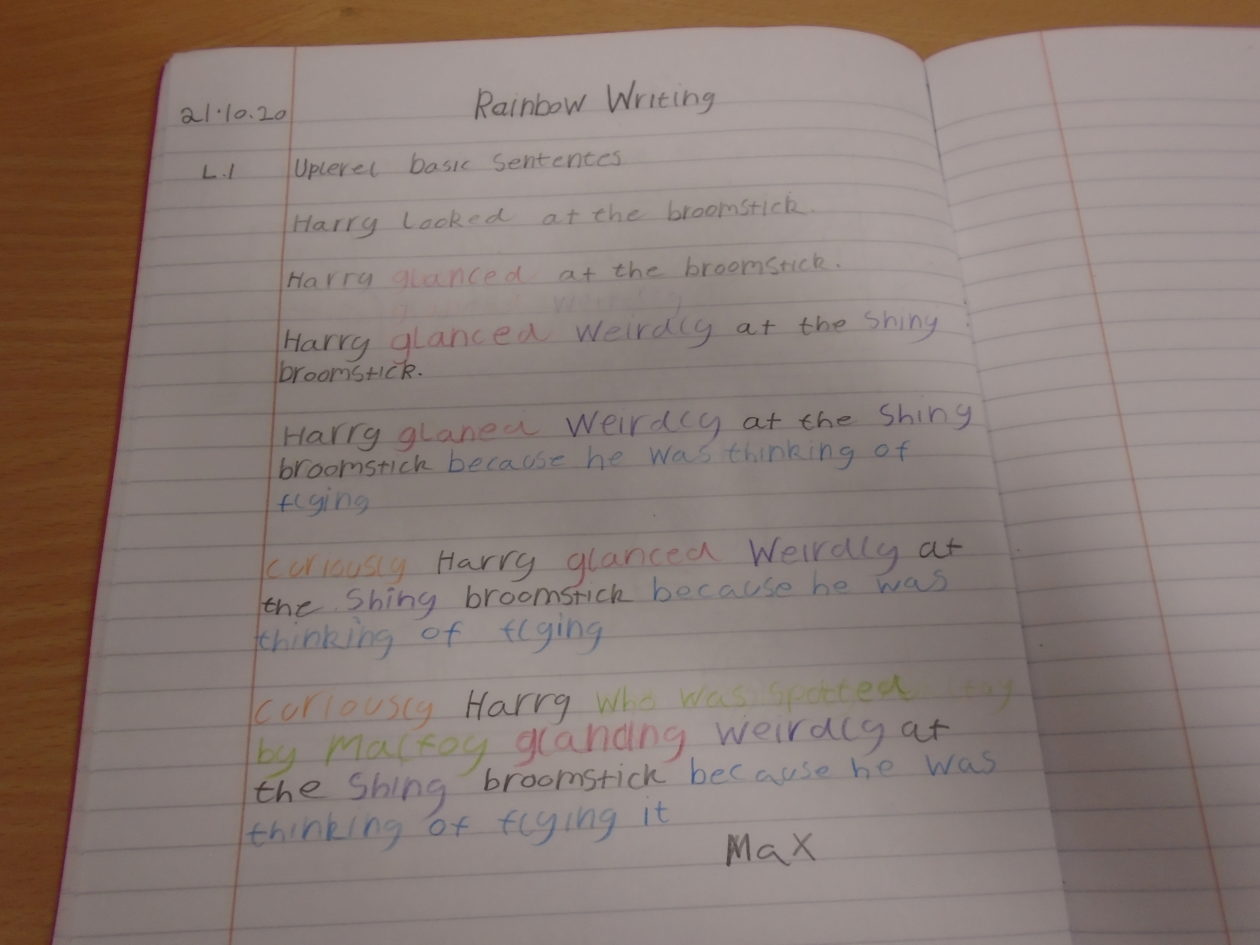 21.10.20 Rainbow Writing
L.I Uplevel basic sentences
Harry looked at the broomstick.
Harry glanced at the broomstick.
Harry glanced weirdly at the shiny
broomstick.
Harry glaned weirdly at the shiny
broomstick because he was thinking of
flying
curiously Harry glanced weirdly at
the shing broomstick because he was
thinking of flying
curiously Harry who was spotted
by Malfoy glancing weirdly at
the shing broomstick because he was
thinking of flying it
Max